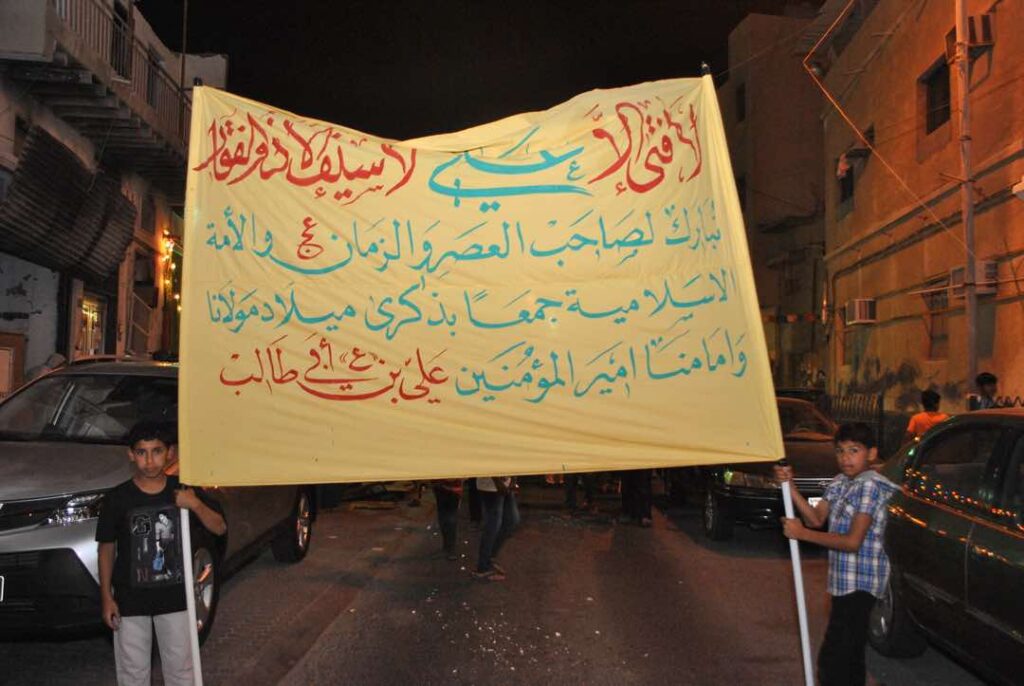 لا فتى إلا علي ع لا سيف إلا ذو الفقار
نبارك لصاحب العصر والزمان عج والأمة
الاسلامية جمعاً بذكرى ميلاد مولانا
وامامنا امير المؤمنين علي بن أبي طالب ع